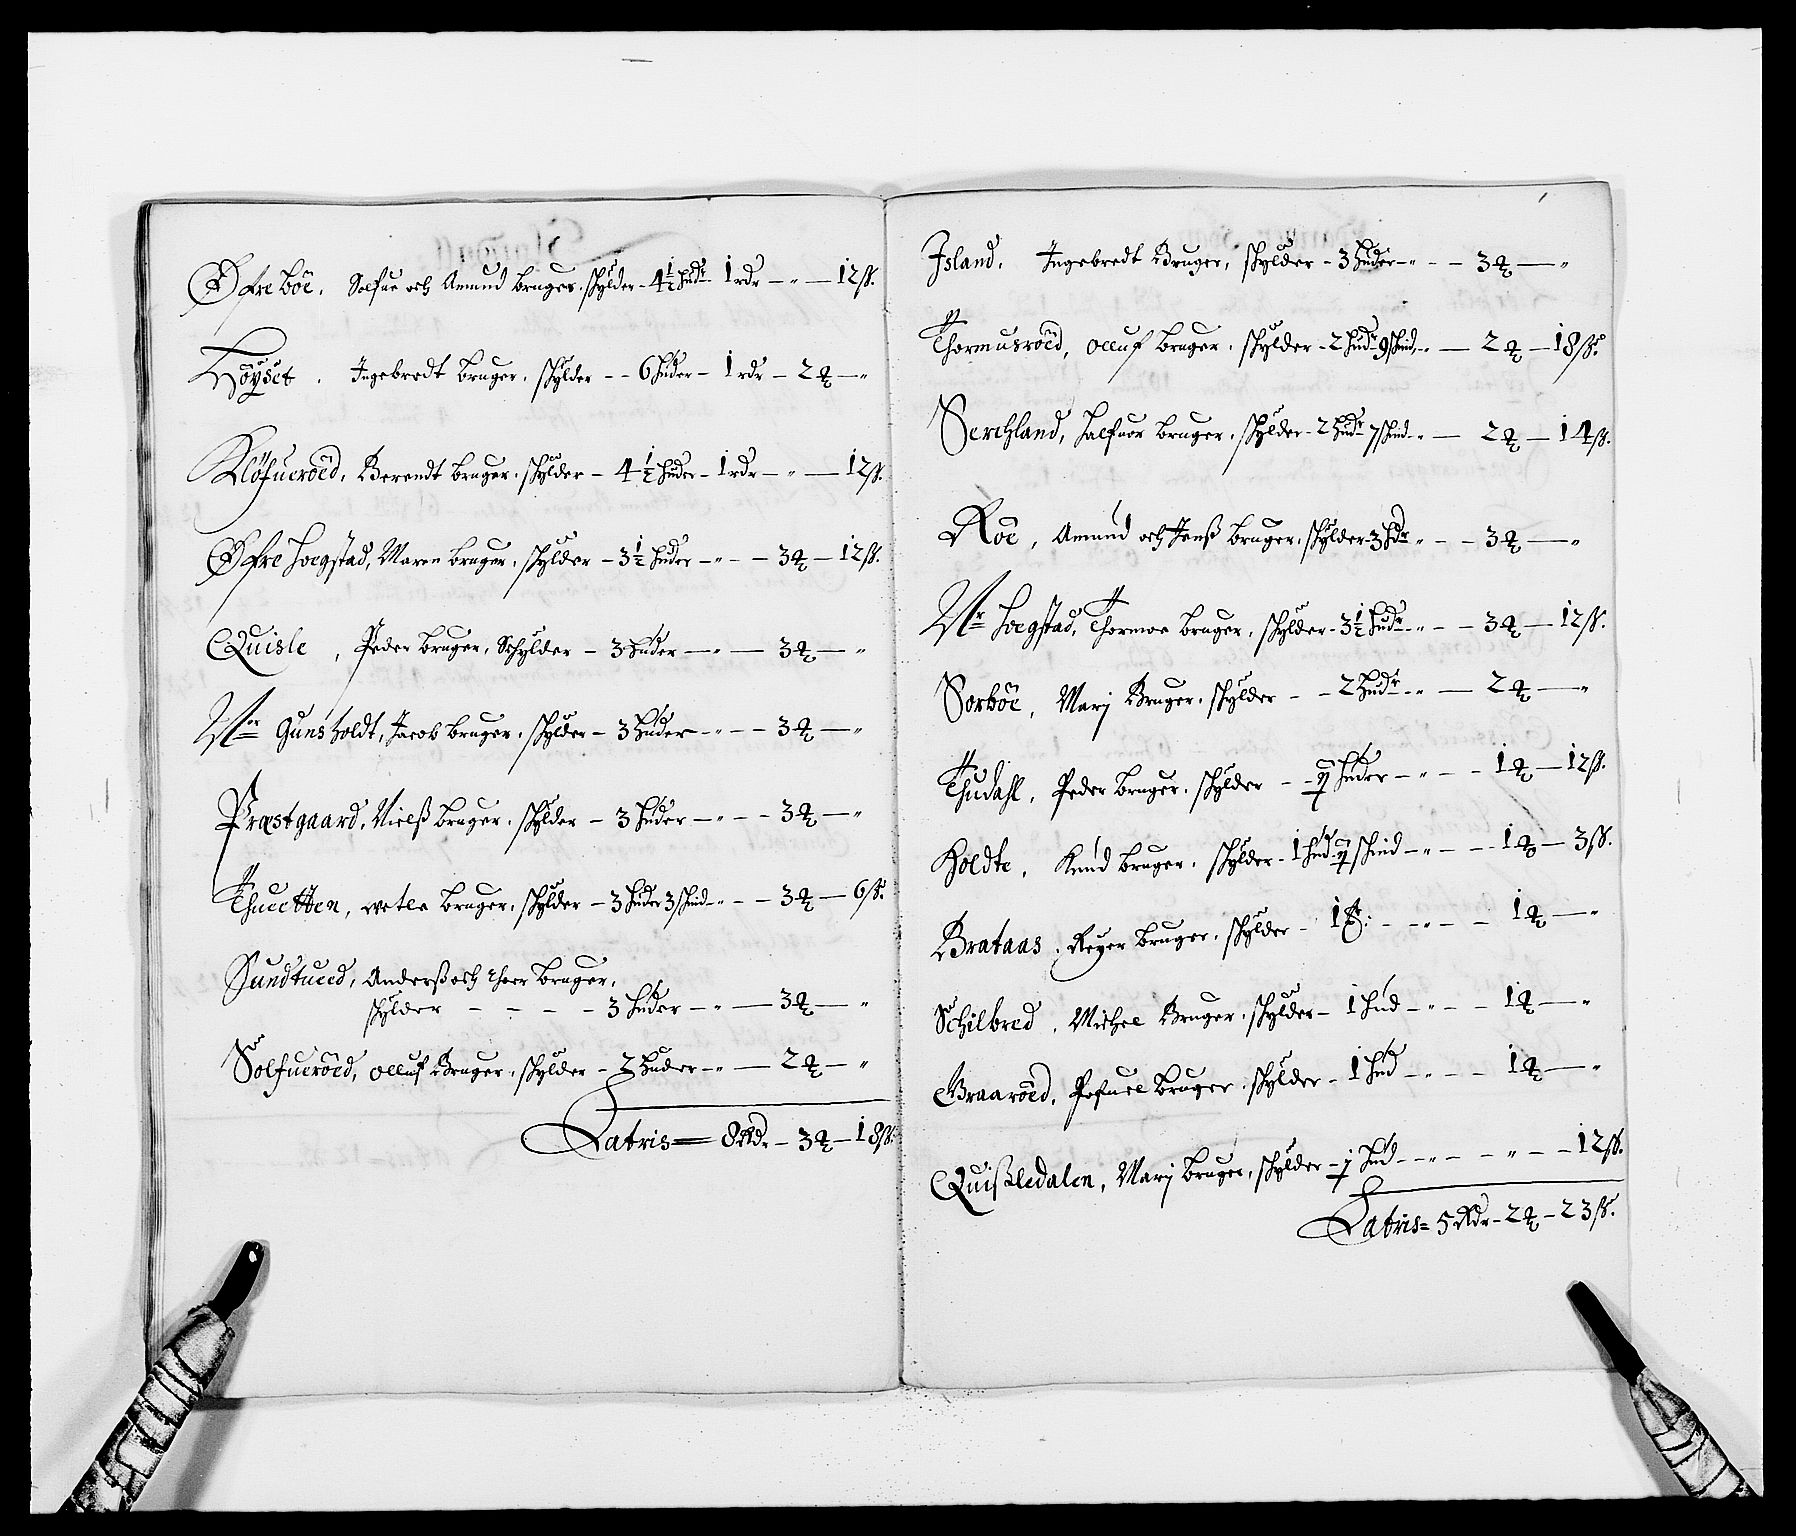 Øfre böe, Solfue och Amund bruger, schylder - 4½ hudr - 1 rdr - " - 12 ß.
Höyset, Ingebredt bruger, schylder - - 6 huder - 1 rdr - 2 ꝗ - "
Klöfueröed, Berendt bruger, schylder - 4½ huder - 1 rdr - " - 12 ß.
Øfre Hoegstad, Maren bruger, schylder - 3½ huder - " - - 3 ꝗ - 12 ß.
Quisle, Peder bruger, Schylder - 3 huder - " - 3 ꝗ - "
Nr Gunsholdt, Jacob bruger, schylder - 3 huder - " - - 3 ꝗ - "
Præstgaard, Nielß bruger, schylder - 3 huder - " - - 3 ꝗ - "
Thuetten, bruger, schylder - 3 huder 3 schind - " - - 3 ꝗ - 6 ß.
Sundtued, Anderß och Thoer bruger,
schylder - - - - 3 huder - " - 3 ꝗ - "
Solfueröed, Olluf Bruger, schylder - 2 huder - " - 2 ꝗ - "
Latris = 8 Rdr - 3 ꝗ - 18 ß.
Island, Ingebredt Bruger, schylder - 3 huder - " - - 3 ꝗ - "
Thormusröed, Olluf bruger, schylder - 2 hudr 9 schind - " - 2 ꝗ - 18 ß.
Serchland, Halfuor bruger, schylder - 2 hudr 7 schind - " - 2 ꝗ - 14 ß.
Röe, Amund och Jenß bruger, schylder - 3 hdr - " - - 3 ꝗ - "
Nr Hoegstad, Thormoe bruger, schylder - 3½ hudr - " - - 3 ꝗ - 12 ß.
Sorböe, Marj Bruger, schylder - - 2 hudr - " - 2 ꝗ - "
Thudahl, Peder bruger, schylder - - huder - " - - 1 ꝗ - 12 ß.
Holdte, Knud bruger, schylder - 1 hud schind - " - - 1 ꝗ - 3 ß.
Brataas, Reyer bruger, schylder - 1 - " - - 1 ꝗ - "
Schilbred, Michel Bruger, schylder - 1 hud - " - - 1 ꝗ - "
Braaröed, Pofuel bruger, schylder - 1 hud - " - - 1 ꝗ - "
Quißledalen, Marj bruger, schylder - hud - " - - " - - 12 ß.
Latris = 5 Rdr - 2 ꝗ - 23 ß.